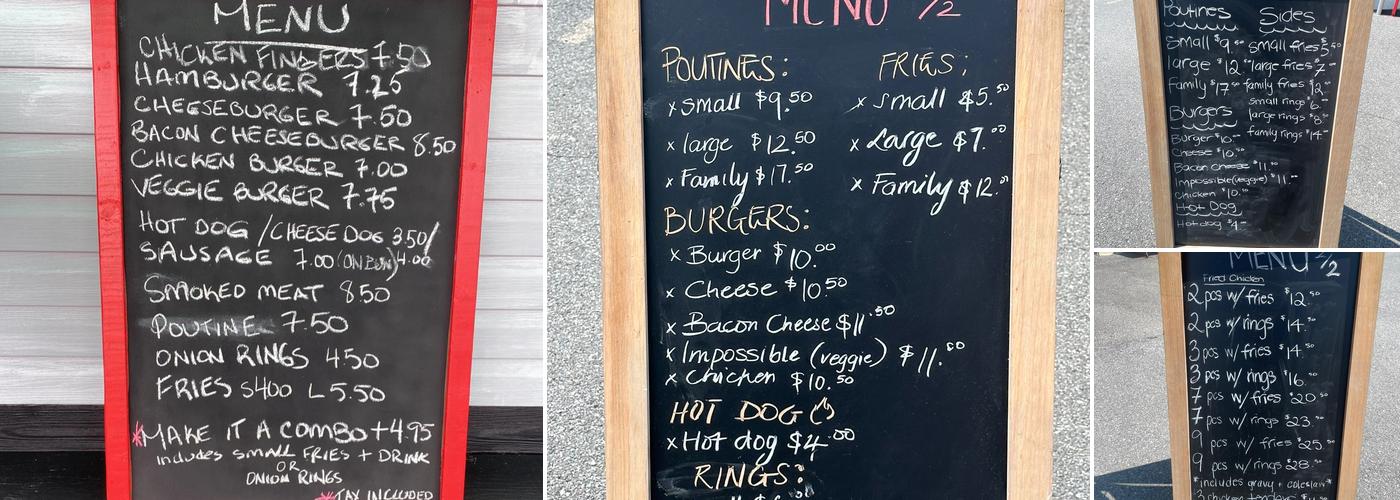 MENU
CHICKEN FINGERS 7.50
HAMBURGER 7.25
CHEESEBURGER 7.50
BACON CHEESEBURGER 8.50
CHICKEN BURGER 7.00
VEGGIE BURGER 7.75
HOT DOG / CHEESE DOG 3.50/
SAUSAGE 7.00 (ON BUN) 4.00
SMOKED MEAT 8.50
POUTINE 7.50
ONION RINGS 4.50
FRIES S 4.00 L 5.50
*MAKE IT A COMBO +4.95
includes SMALL FRIES + DRINK
OR
ONION RINGS
*TAX INCLUDED
MENU 1/2
POUTINES:
x small $9.50
x large $12.50
x Family $17.50
FRIES:
x small $5.50
x Large $7.00
x Family $12.00
BURGERS:
x Burger $10.00
x Cheese $10.50
x Bacon Cheese $11.50
x Impossible (veggie) $11.50
x Chicken $10.50
HOT DOG
x Hot dog $4.00
RINGS:
Poutines
Small $9.
large $12.
Family $17.
Sides
small fries $5.50
large fries $7
family fries $12
small rings $6
large rings $8
family rings $14
Burgers
Burger $10
Cheese $10
Bacon Cheese $11
Impossible (veggie) $11
Chicken $10
Hot Dog
Hot dog $4
MENU 2/2
Fried Chicken
2 pcs w/ fries $12.50
2 pcs w/ rings $14.
3 pcs w/ fries $14.
3 pcs w/ rings $16.
7 pcs w/ fries $20.
7 pcs w/ rings $23.
9 pcs w/ fries $25.
9 pcs w/ rings $28.
*includes gravy + coleslaw*